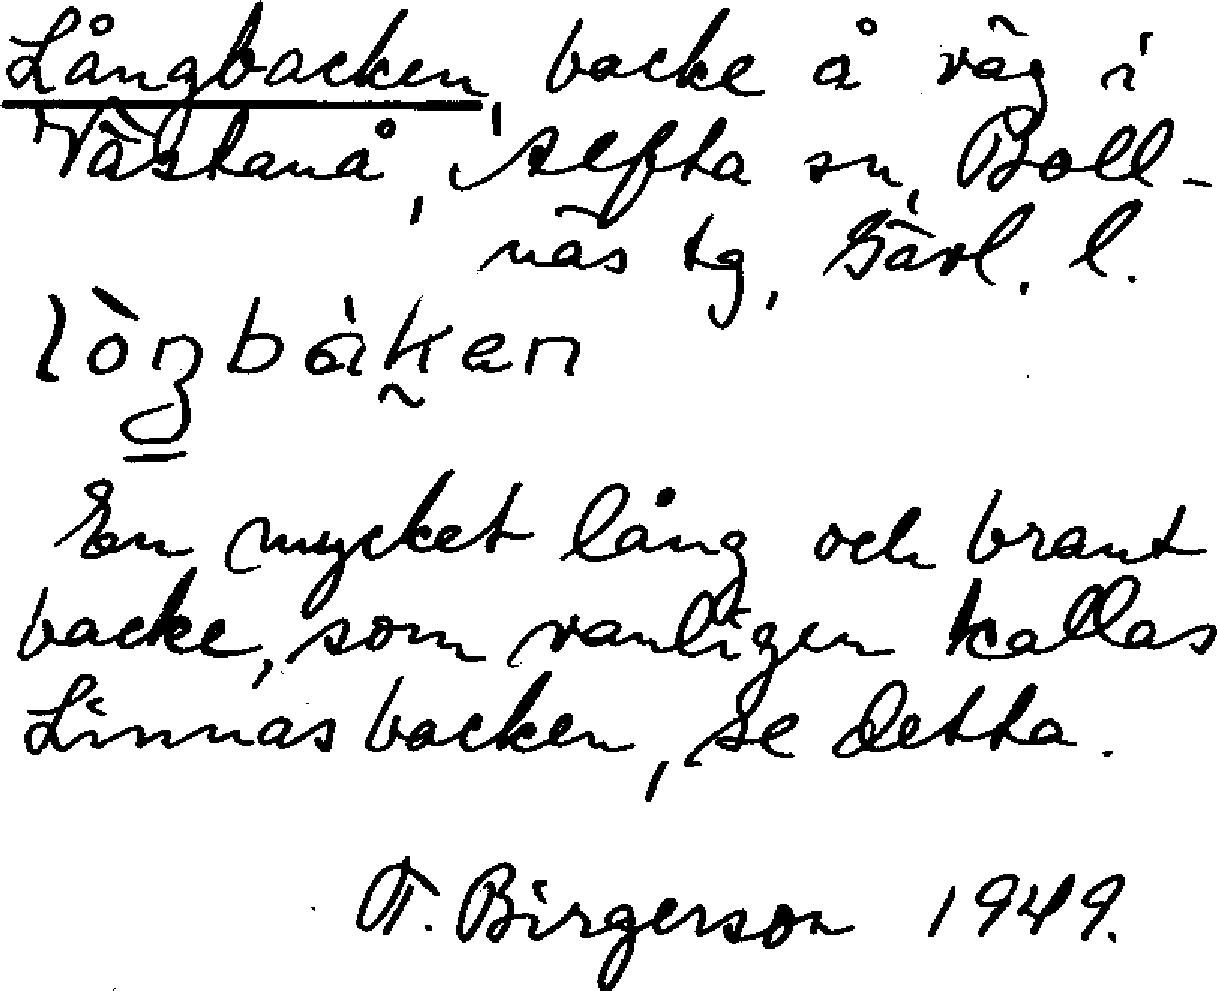 Långbacken, backe å väg i
Västanå, Alfta sn, Boll-
näs tg, Gävl. l.
En mycket lång och brant
backe, som vanligen kallas
Linnasbacken, se detta.
F. Birgerson 1949.